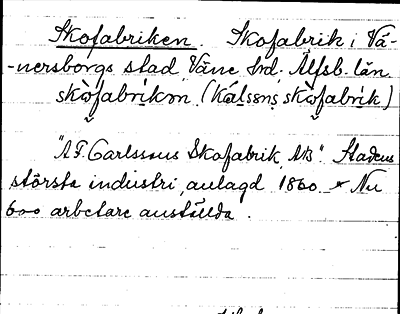 Skofabriken. Skofabrik i Vä-
-nersborgs stad, Väne hrd. Älfsb. län.
skòfabrikən (Kálsɷns skòfabrik)
"A.F. Carlssons Skofabrik, AB" Stadens
största industri, anlagd 1860. Nu
600 arbetare anställda.